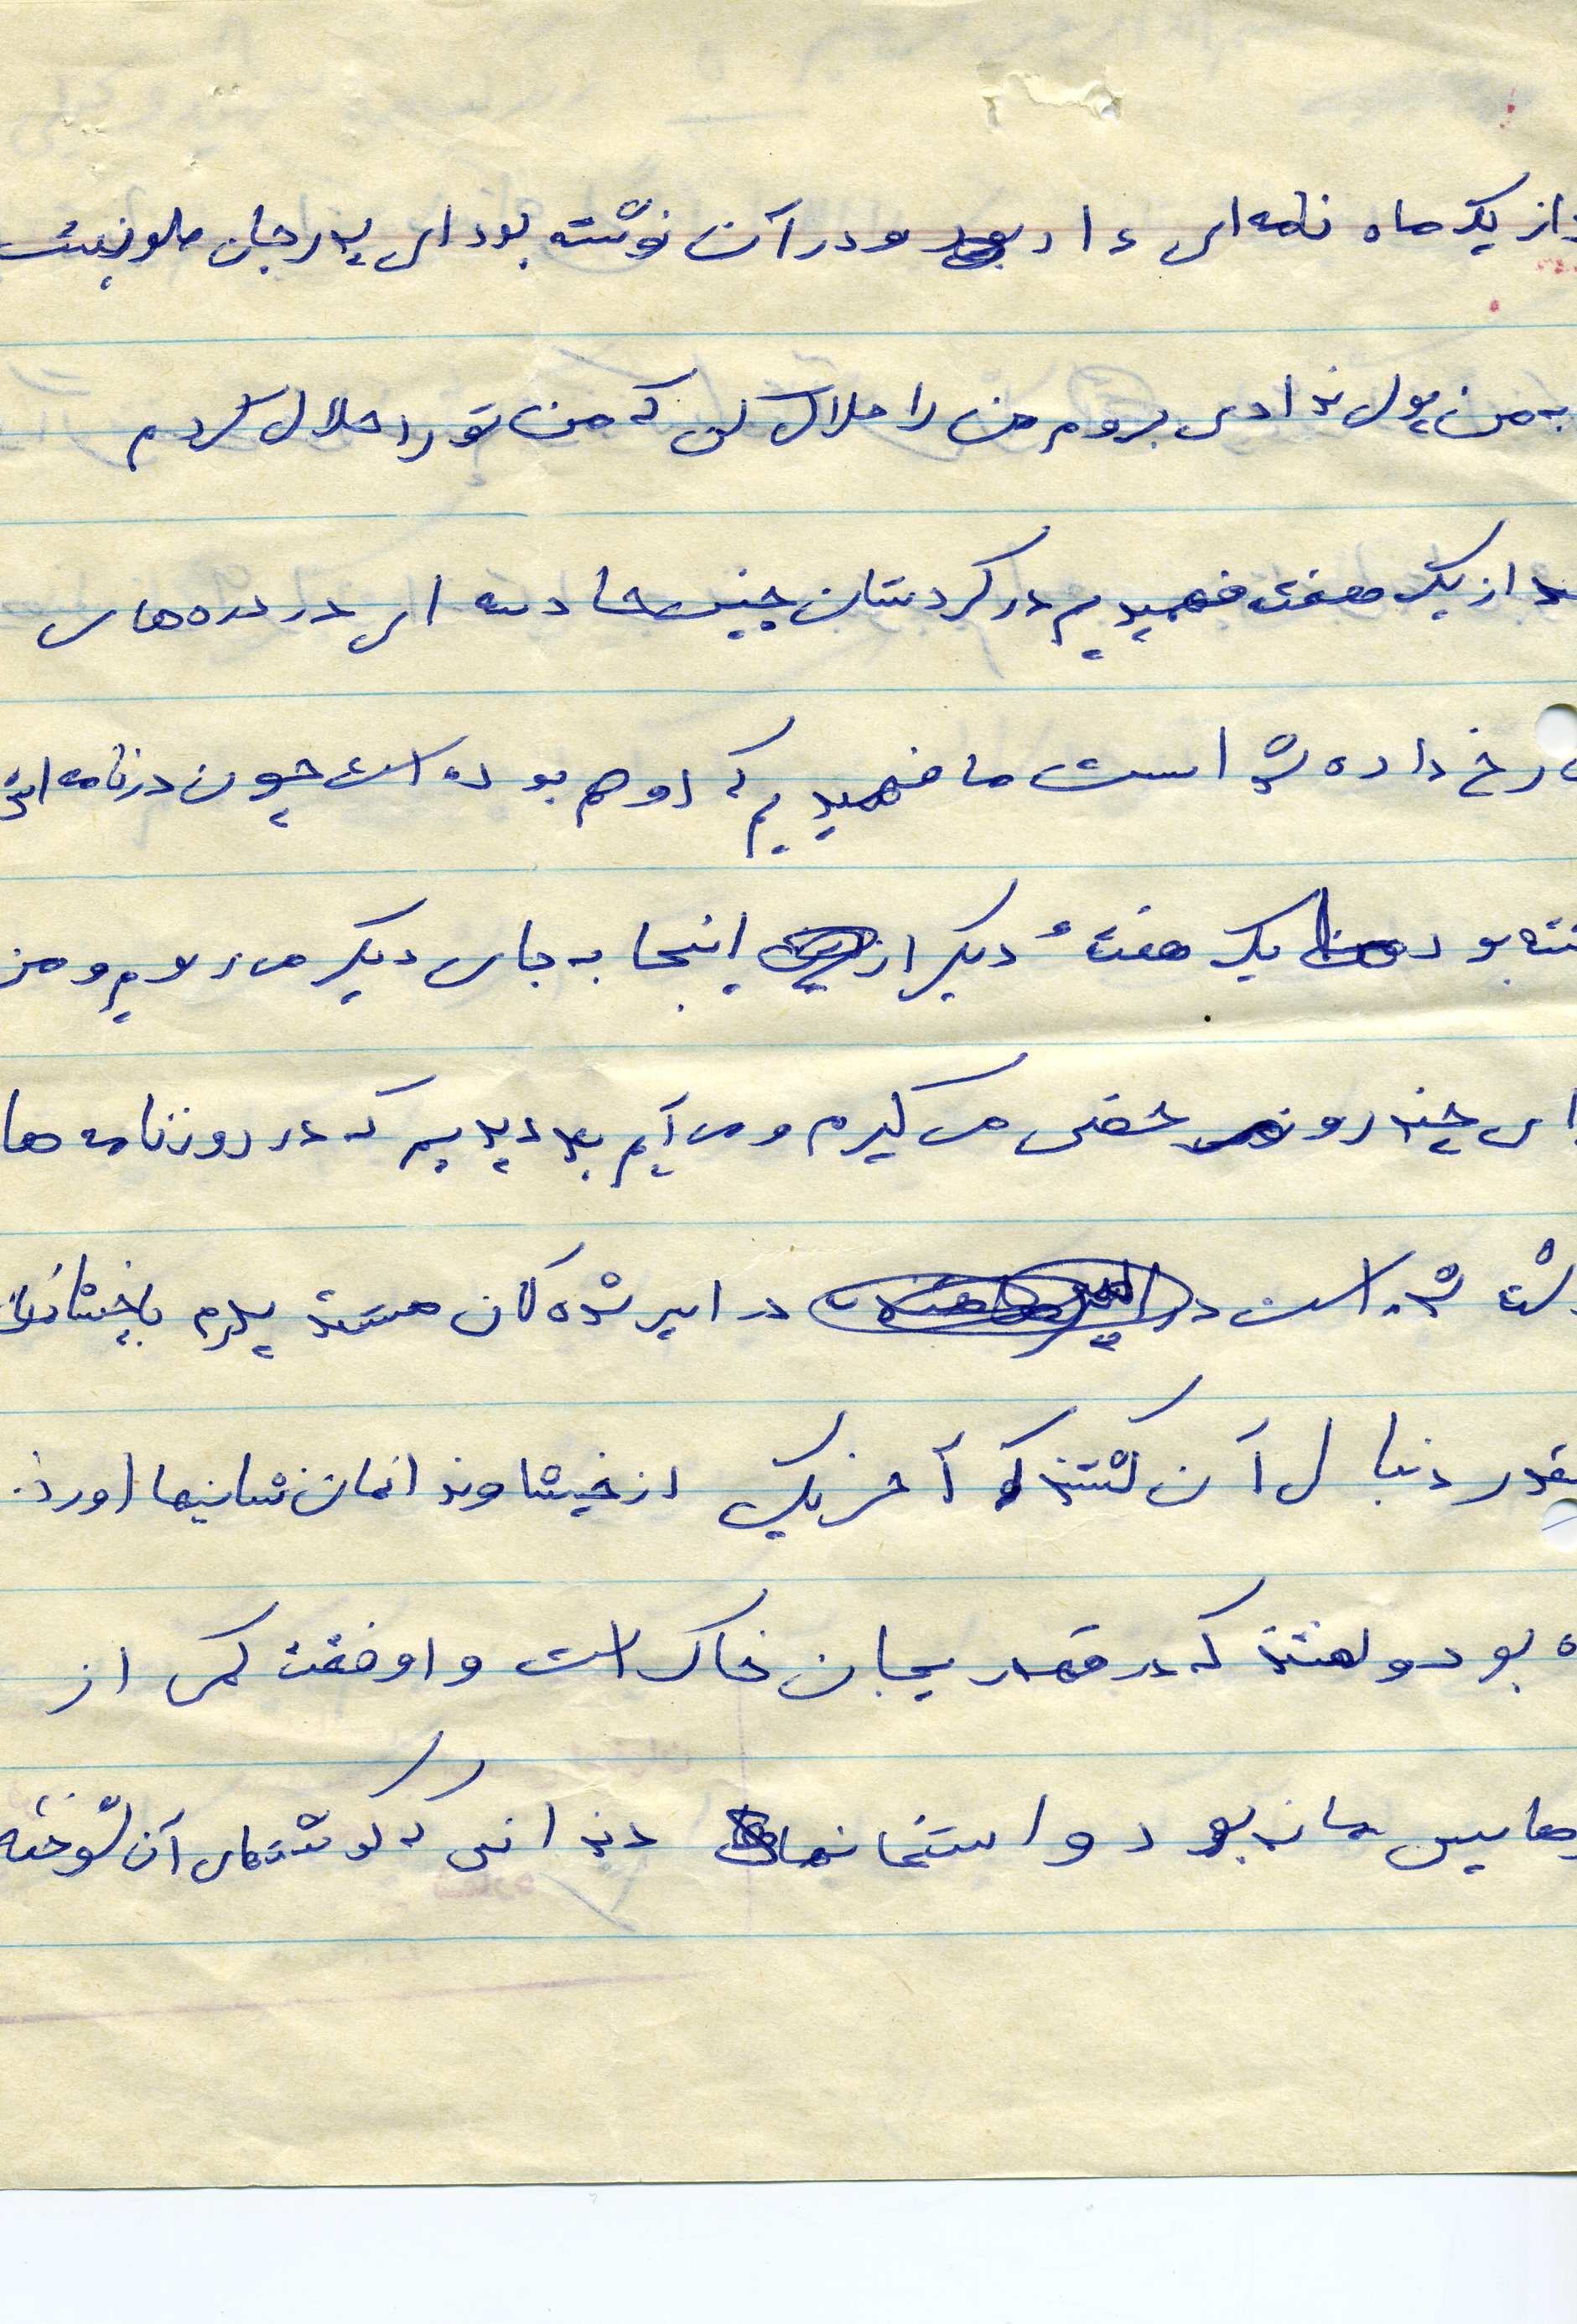 از یک ماه نامه ای داد و در آن نوشته بود ای پدر جان جلو نیست
به من پول ندادی بروم من را حلال کن که من تو را حلال کردم
از یک هفته فهمیدیم در کردستان چنین حادثه ای در دره های
رخ داده شد است ما فهمیدیم که او هم بوده است چون در نامه اش
بود یک هفتهٔ دیگر از اینجا به جای دیگر می رویم و من
چند روز مرخصی می گیرم و می آیم بعد دیدیم که در روزنامه ها
شده است در اسیر شده گان هستند پدرم با
دنبال آن گشتند که آخر یک از خیشاوندانمان نشانیها آورد
بود و گفتند که در قصد ریجان خاک است و او فقت کمی از
مانده بود و استخانهای دندانی که گوشتهای آن سوخته